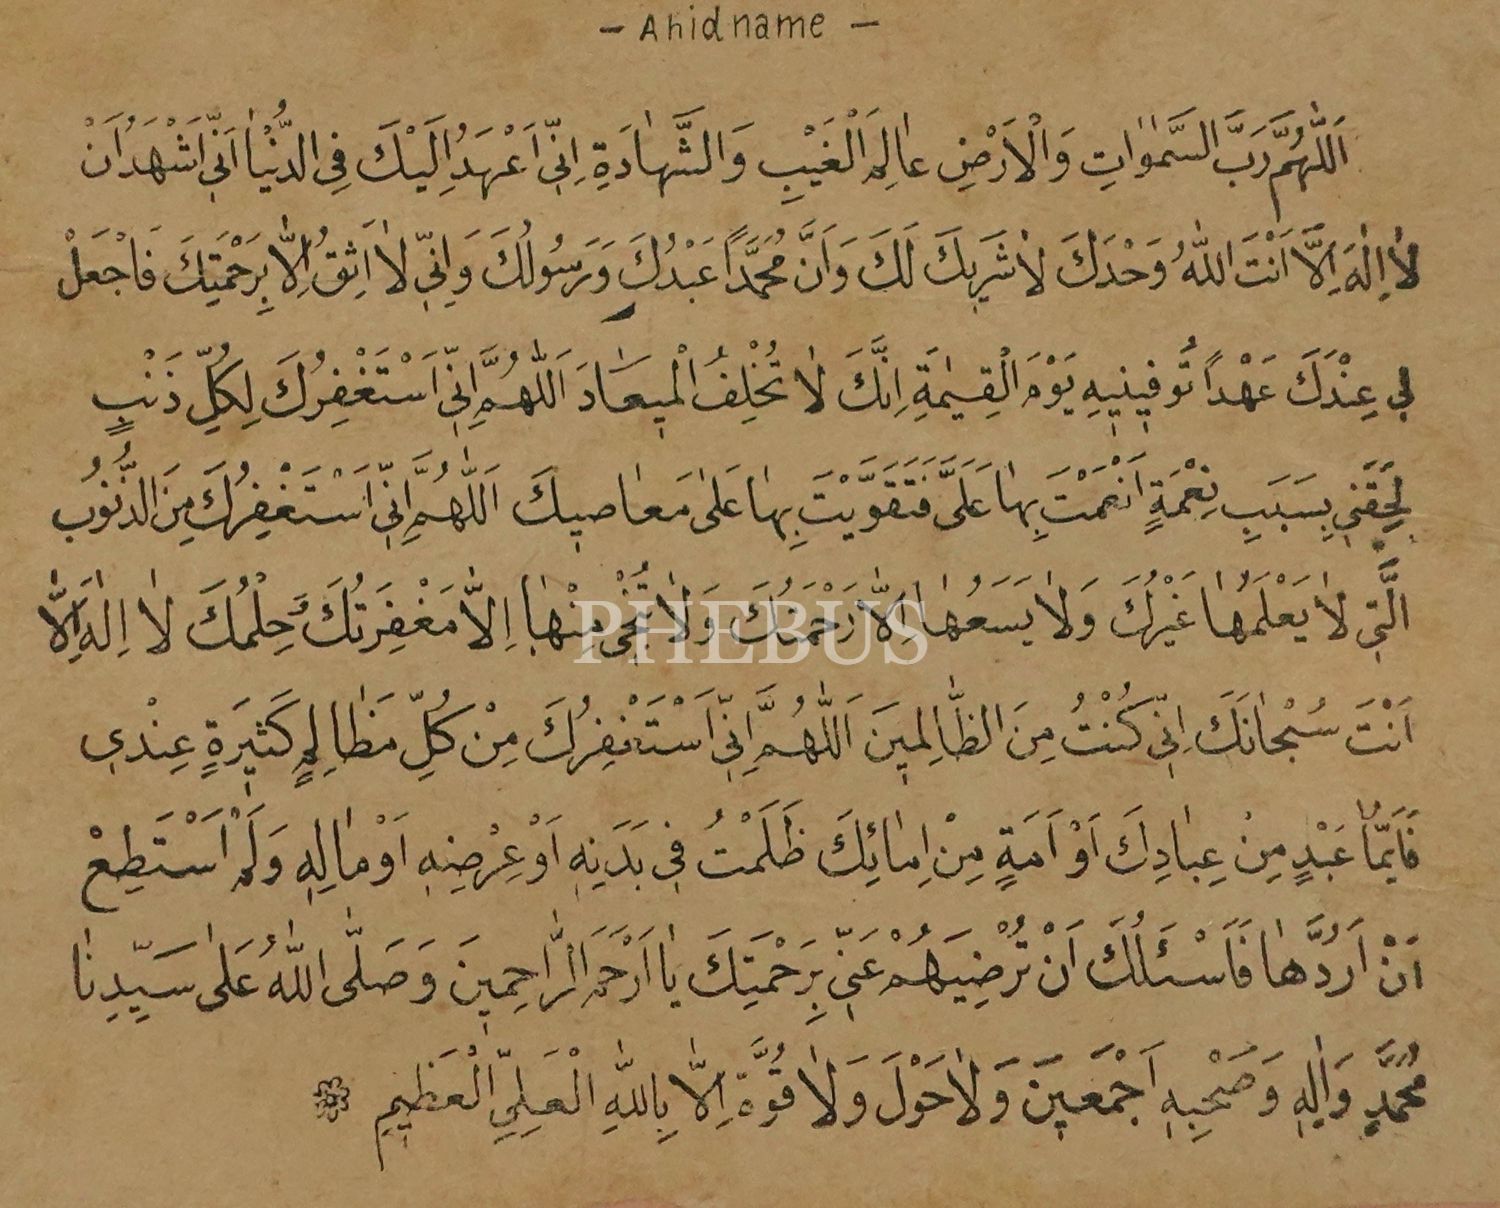 - Ahidname -
اَللّٰهُمَّ رَبَّ السَّمٰوٰاتِ وَالْاَرْضِ عٰالِمَ الْغَيْبِ وَالشَّهٰادَةِ اِنّٖي اَعْهَدُ اِلَيْكَ فِي الدُّنْيٰا اَنّٖي اَشْهَدُ اَنْ
لٰا اِلٰهَ اِلَّا اَنْتَ اللّٰهُ وَحْدَكَ لٰا شَرٖيكَ لَكَ وَاَنَّ مُحَمَّدًا عَبْدُكَ وَرَسُولُكَ وَاِنّٖي لٰا اَثِقُ اِلّٰا بِرَحْمَتِكَ فَاجْعَلْ
لٖي عِنْدَكَ عَهْدًا تُوَفّٖينٖيهِ يَوْمَ الْقِيٰمَةِ اِنَّكَ لٰا تُخْلِفُ الْمٖيعَادَ اَللّٰهُمَّ اِنّٖي اَسْتَغْفِرُكَ لِكُلِّ ذَنْبٍ
لَحِقَنٖي بِسَبَبِ نِعْمَةٍ اَنْعَمْتَ بِهٰا عَلَيَّ فَتَقَوَّيْتَ بِهٰا عَلٰى مَعٰاصٖيكَ اَللّٰهُمَّ اِنّٖي اَسْتَغْفِرُكَ مِنَ الذُّنُوبِ
الَّتٖي لٰا يَعْلَمُهٰا غَيْرُكَ وَلٰا يَسَعُهٰا اِلّٰا رَحْمَتُكَ وَلٰا تُنْجٖي مِنْهٰا اِلّٰا مَغْفِرَتُكَ وَحِلْمُكَ لٰا اِلٰهَ اِلّٰا
اَنْتَ سُبْحٰانَكَ اِنّٖي كُنْتُ مِنَ الظّٰالِمٖينَ اَللّٰهُمَّ اِنّٖي اَسْتَغْفِرُكَ مِنْ كُلِّ مَظٰالِمٍ كَثٖيرَةٍ عِنْدٖي
فَاَيُّمٰا عَبْدٍ مِنْ عِبٰادِكَ اَوْ اَمَةٍ مِنْ اِمٰائِكَ ظَلَمْتُ فٖي بَدَنِهٖ اَوْ عِرْضِهٖ اَوْ مٰالِهٖ وَلَمْ اَسْتَطِعْ
اَنْ اَرُدَّهٰا فَاَسْئَلُكَ اَنْ تُرْضِيَهُمْ عَنّٖي بِرَحْمَتِكَ يٰا اَرْحَمَ الرّٰاحِمٖينَ وَصَلَّى اللّٰهُ عَلٰى سَيِّدِنٰا
مُحَمَّدٍ وَاٰلِهٖ وَصَحْبِهٖ اَجْمَعٖينَ وَلٰا حَوْلَ وَلٰا قُوَّةَ اِلّٰا بِاللّٰهِ الْعَلِيِّ الْعَظٖيمِ
PHEBUS